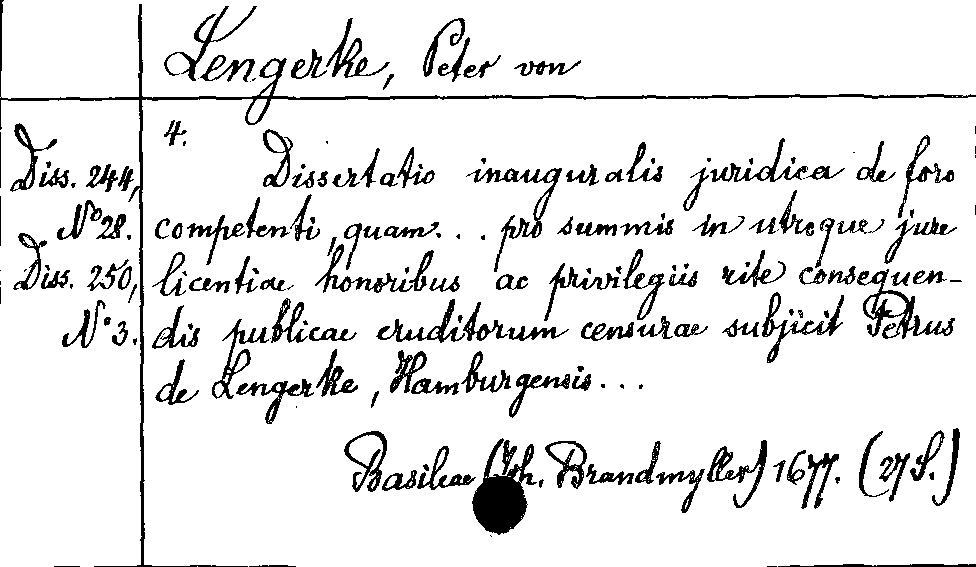 Lengerke, Peter von
4.
Diss. 244,
N° 28.
Diss. 250,
N° 3.
Dissertatio inauguralis juridica de foro
competenti, quam... pro summis in utroque jure
licentiae honoribus ac privilegiis rite consequen-
dis publicae eruditorum censurae subjicit Petrus
de Lengerke, Hamburgensis...
Basileae (Joh. Brandmyller) 1677. (27 S.)